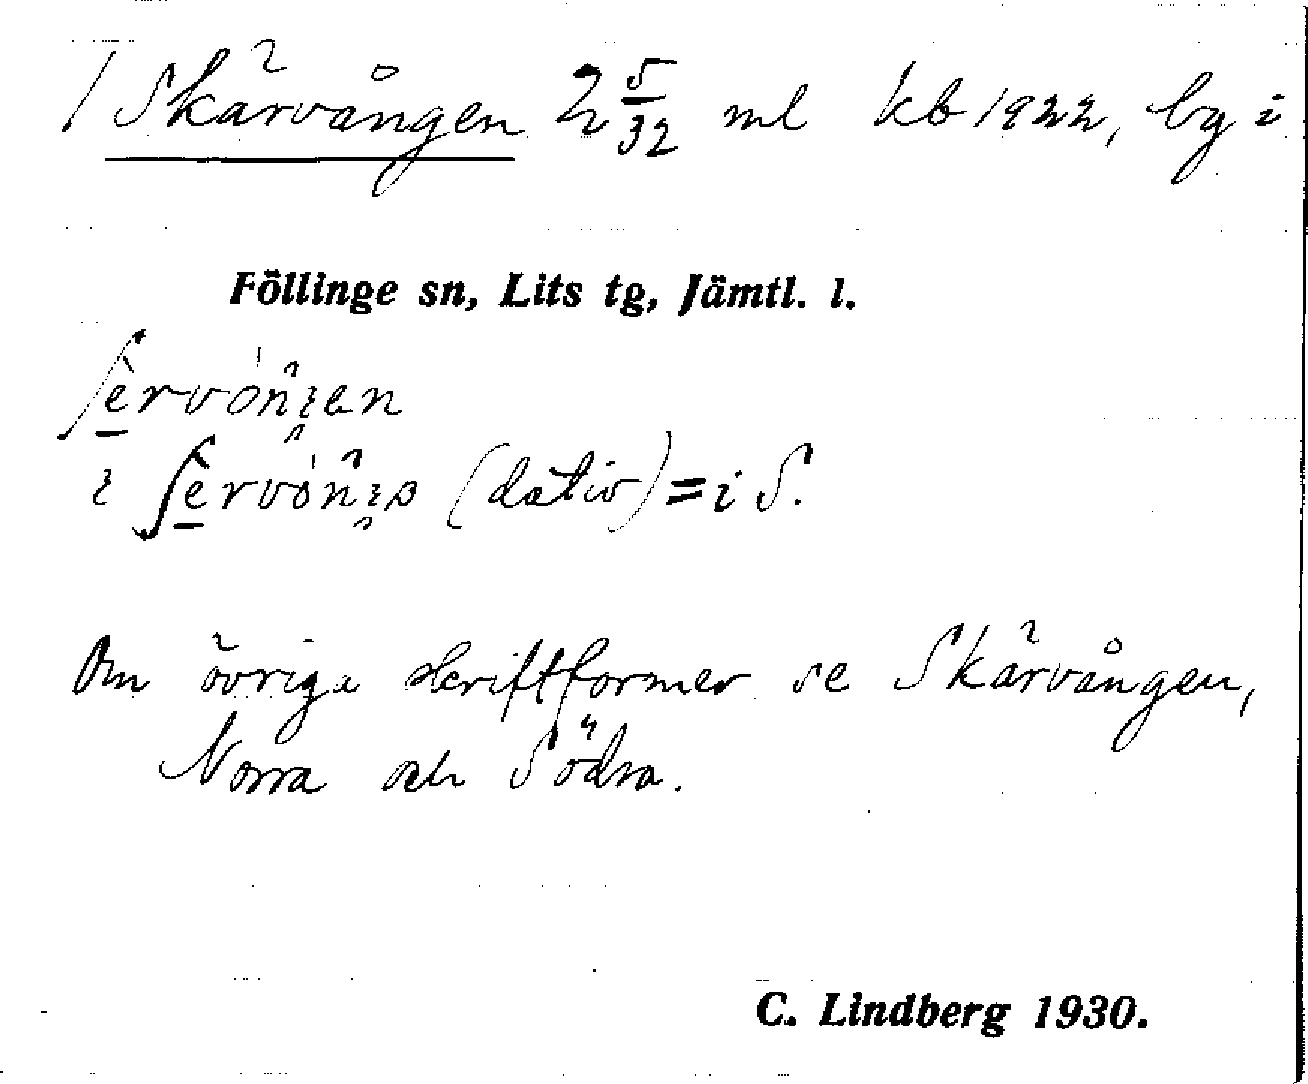 1 Skärvången 2 5/32 ml kb 1922, bg i
Föllinge sn, Lits tg, Jämtl. l.
i (dativ) = i S.
Om övriga skriftformer se Skärvången,
Norra och Södra.
C. Lindberg 1930.